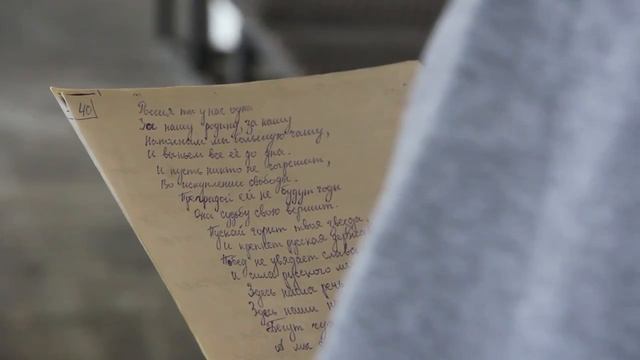 40
Россия ты у нас одна
За нашу родину, за нашу
Наполним мы большую чашу,
И выпьем все её до дна.
И пусть никто не
Во искупление свободы.
Преградой ей не будут годы
Она судьбу свою вершит.
Пускай горит твоя звезда.
И крепнет русская
Побед не увядает
И сила русского
Здесь наша речь
Здесь наши
Бегут
А мы